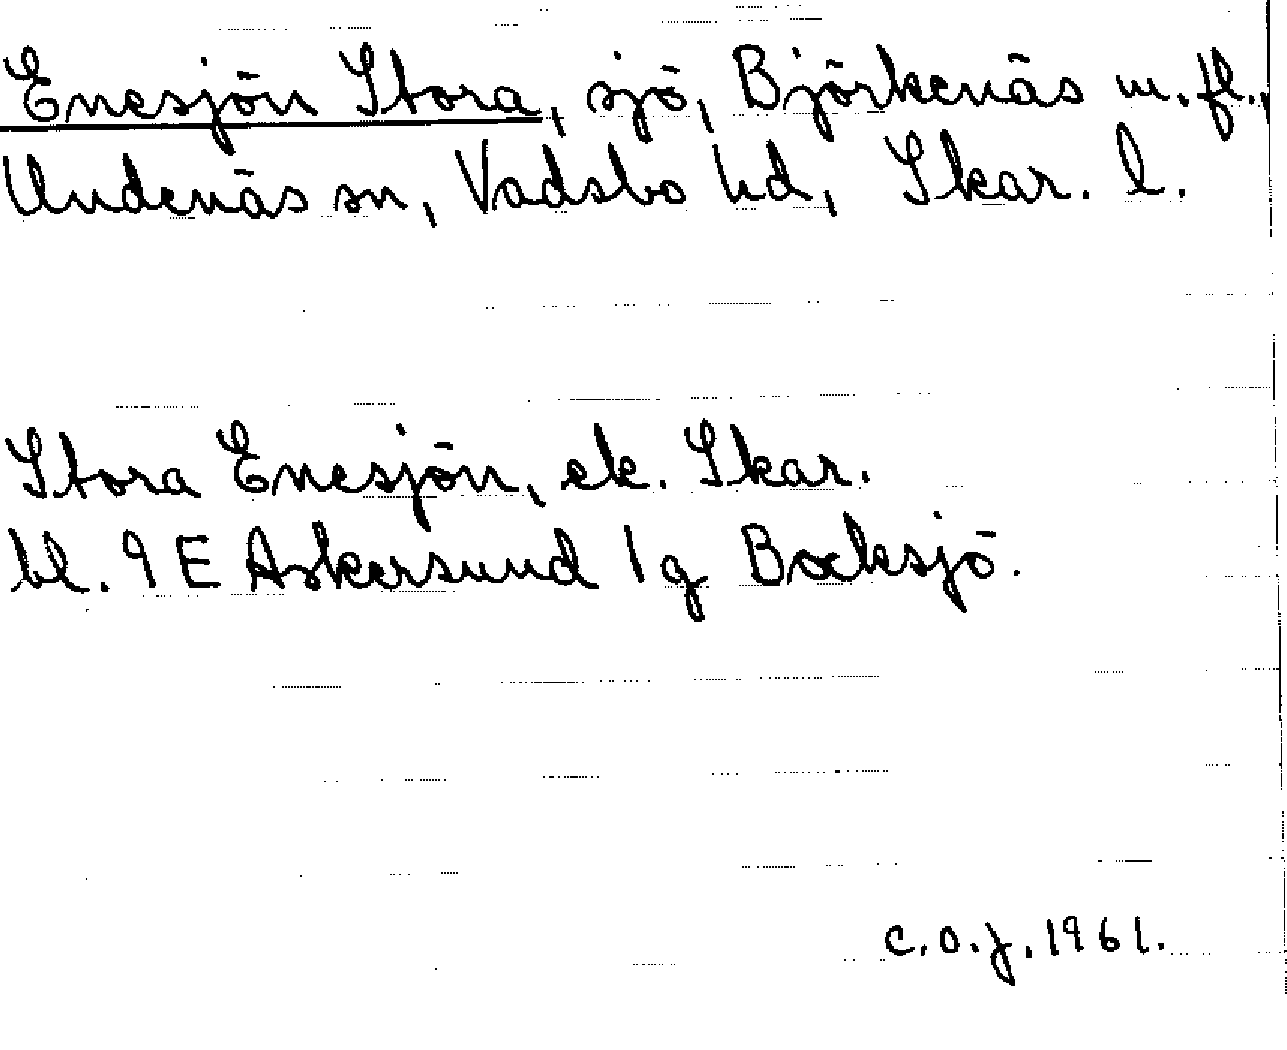 Enesjön Stora, sjö, Björkenäs m.fl.,
Undenäs sn, Vadsbo hd, Skar. l.
Stora Enesjön, ek. Skar.
bl. 9 E Askersund 1 g Bocksjö.
C.O.J. 1961.